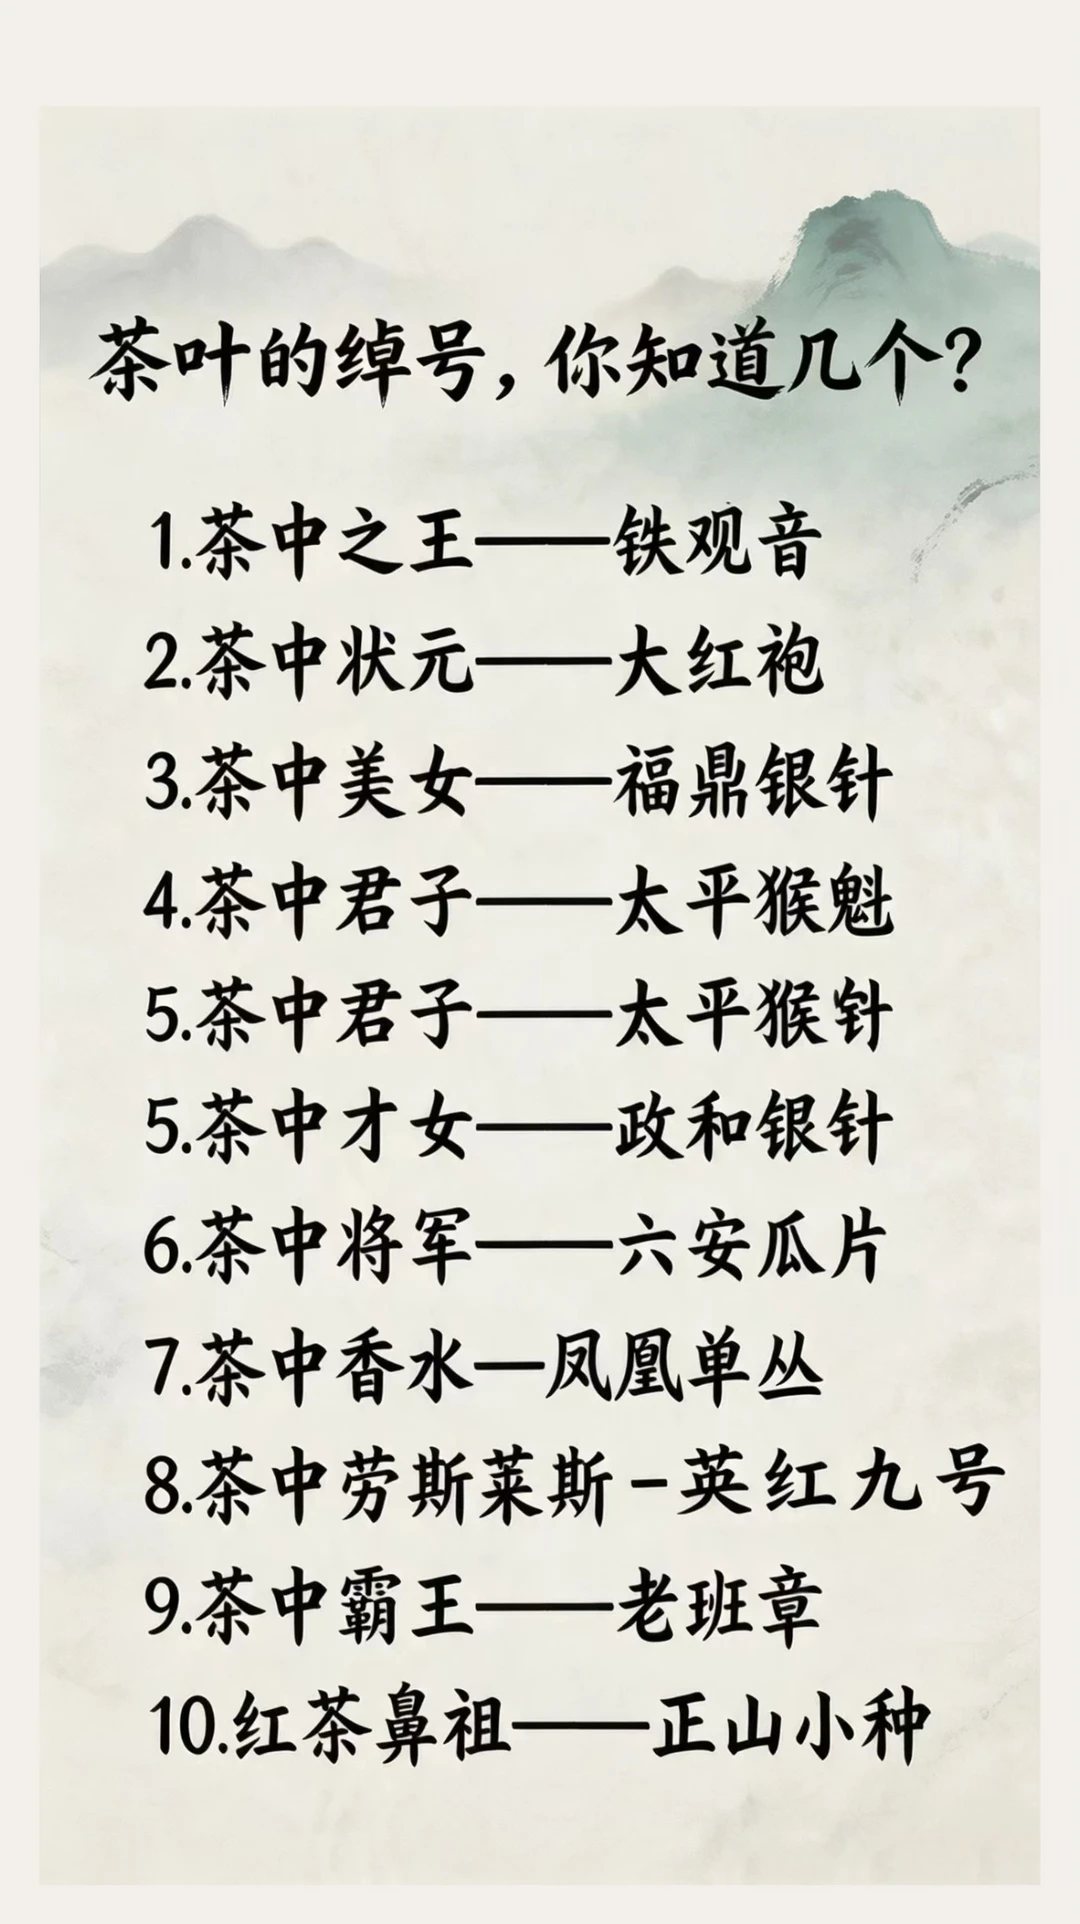 茶叶的绰号，你知道几个?
1.茶中之王——铁观音
2.茶中状元——大红袍
3.茶中美女——福鼎银针
4.茶中君子——太平猴魁
5.茶中君子——太平猴针
5.茶中才女——政和银针
6.茶中将军——六安瓜片
7.茶中香水—凤凰单丛
8.茶中劳斯莱斯-英红九号
9.茶中霸王——老班章
10.红茶鼻祖——正山小种